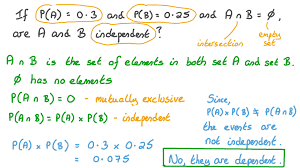 If P(A) = 0.3 and P(B) = 0.25 and A ∩ B = ∅,
are A and B independent?
intersection
empty set
A ∩ B is the set of elements in both set A and set B.
∅ has no elements
P(A ∩ B) = 0 - mutually exclusive
P(A ∩ B) = P(A) × P(B) - independent
P(A) × P(B) = 0.3 × 0.25
= 0.075
Since,
P(A) × P(B) ≠ P(A ∩ B)
the events are
not independent.
No, they are dependent.